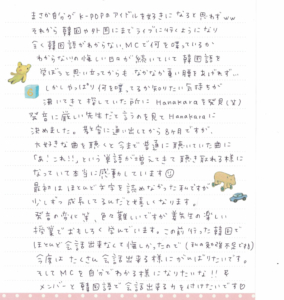 まさか自分がK-POPのアイドルを好きになると思わずww
それから韓国や外国にまでライブに行くようになり
全く韓国語がわからない、MCで何を喋っているか
わからないの悔しい日々が続いていて韓国語を
学ぼうと思い立ってからもなかなか重い腰をあげれず…
しかしやっぱり何を喋ってるか知りたい気持ちが
湧いてきて探していた所にHanakaraを発見(笑)
発音に厳しい先生だと言うのを見てHanakaraに
決めました。教室に通い出してから8ヶ月ですが、
大好きな曲を聴くと今まで普通に聴いていた曲に
「あ！これ！！」という単語が増えてきて聴き取れる様に
なっていて本当に感動しています
最初はほとんど文字を読めなかった私ですが
少しずつ成長してるんだと嬉しくなります。
発音の変化等、色々難しいですが黄先生の楽しい
授業で、おもしろく学んでいます。この前行った韓国で
ほとんど会話出来なくて悔しかったので(私の勉強不足です)
今度はたくさん会話出来る様にがんばりたいです。
そしてMCを自分でわかる様になりたいな！！
メンバーと韓国語で会話出来る力を付けたいです♡